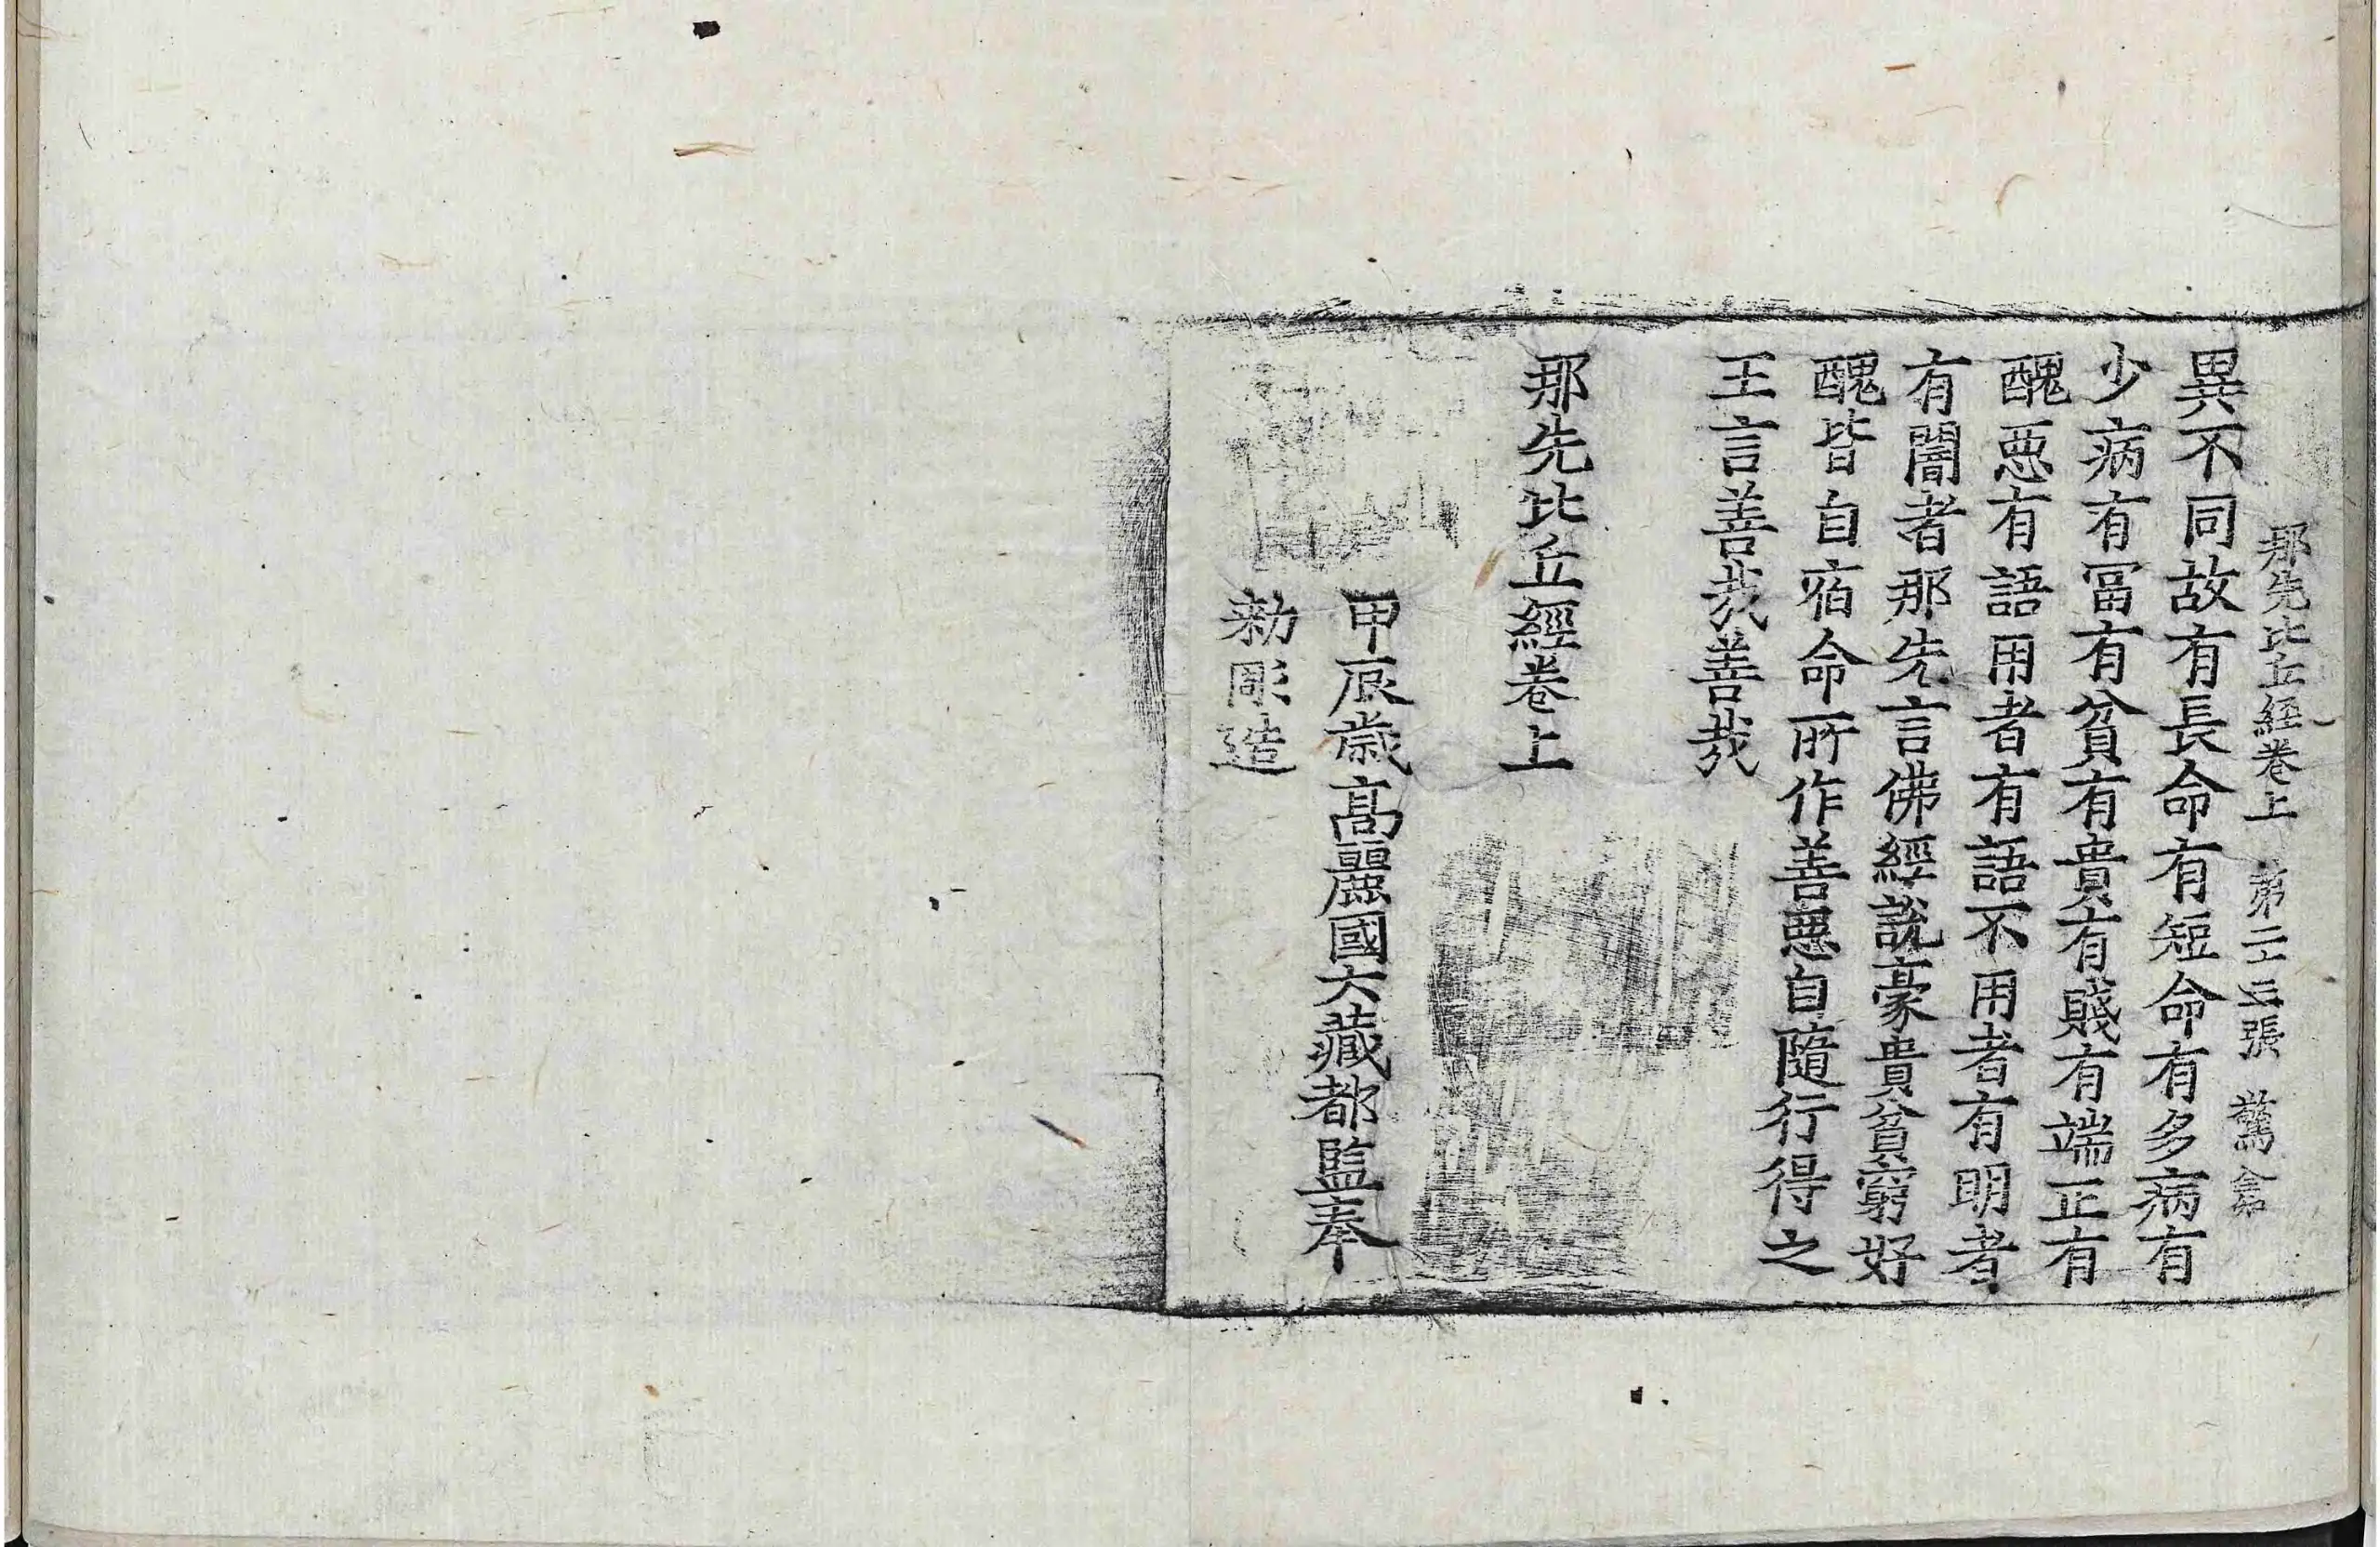 那先比丘經卷上 第二十三張 驚食
異不同故有長命有短命有多病有
少病有冨有貧有貴有賤有端正有
醜惡有語用者有語不用者有明者
有闇者那先言佛經說豪貴貧窮好
醜皆自宿命所作善惡自隨行得之
王言善哉善哉
那先比丘經卷上
甲辰歲高麗國大藏都監奉
勑彫造